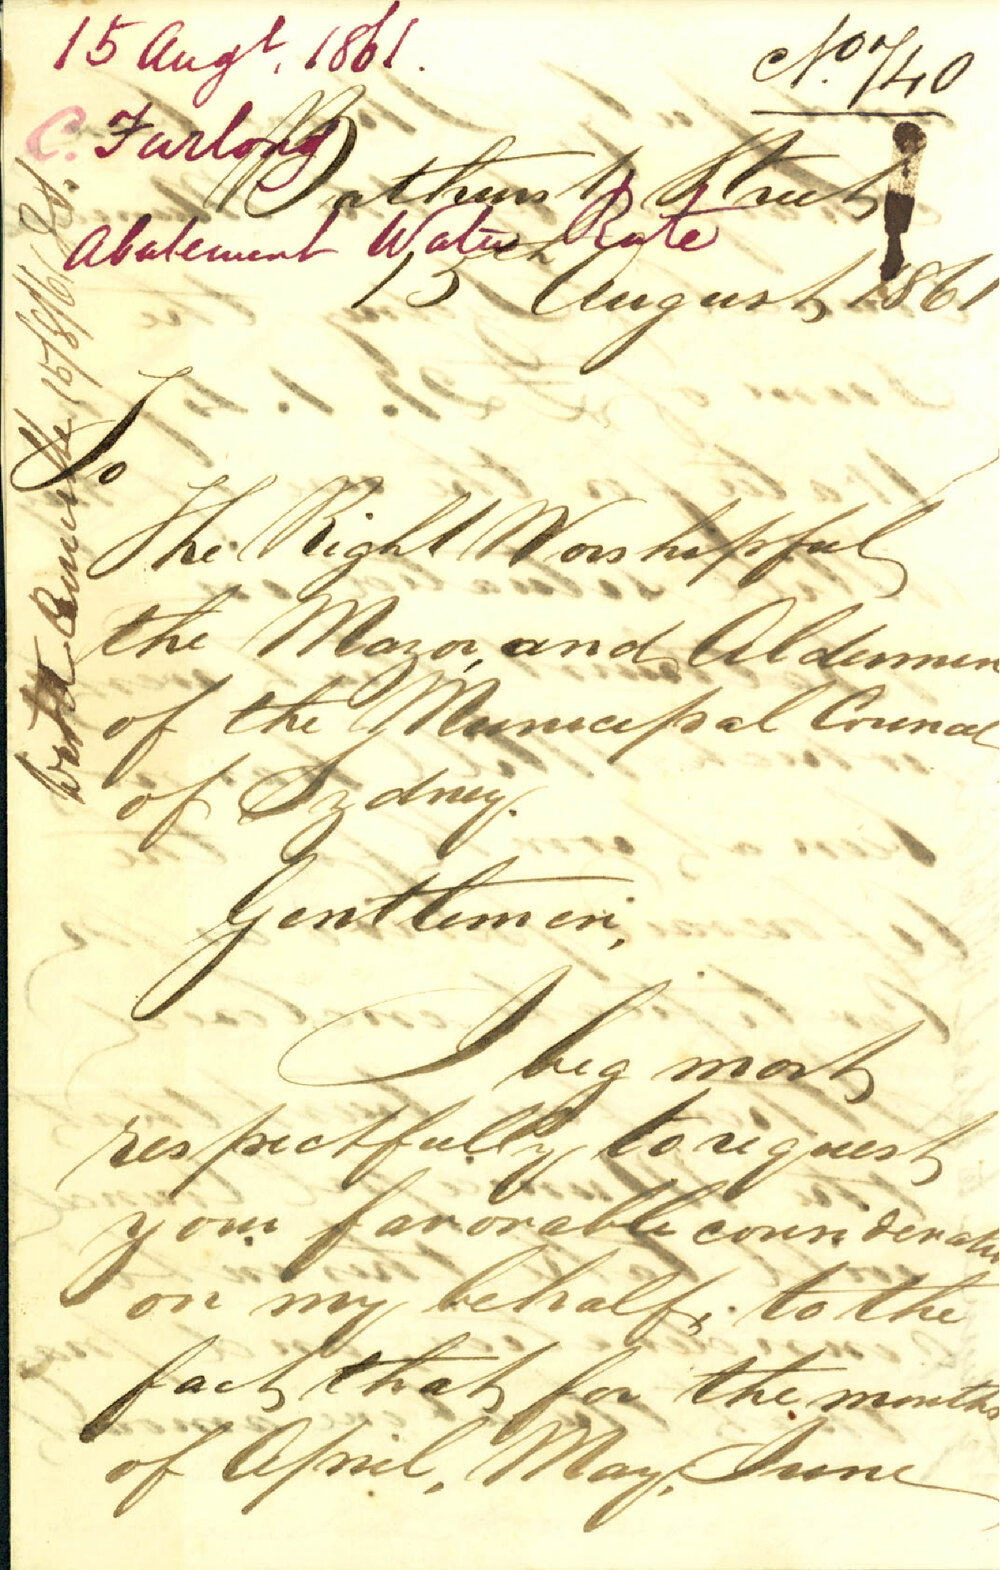 15 Augt, 1861.
No. 740
C. Furlong
Bathurst Street
Abatement Water Rate
15th August 1861
To
The Right Worshipful
the Mayor, and Aldermen
of the Municipal Council
of Sydney.
Gentlemen,
I beg most
respectfully to request
your favorable consideration
on my behalf, to the
fact that for the months
of April, May, June
Water Committee 15/8/61